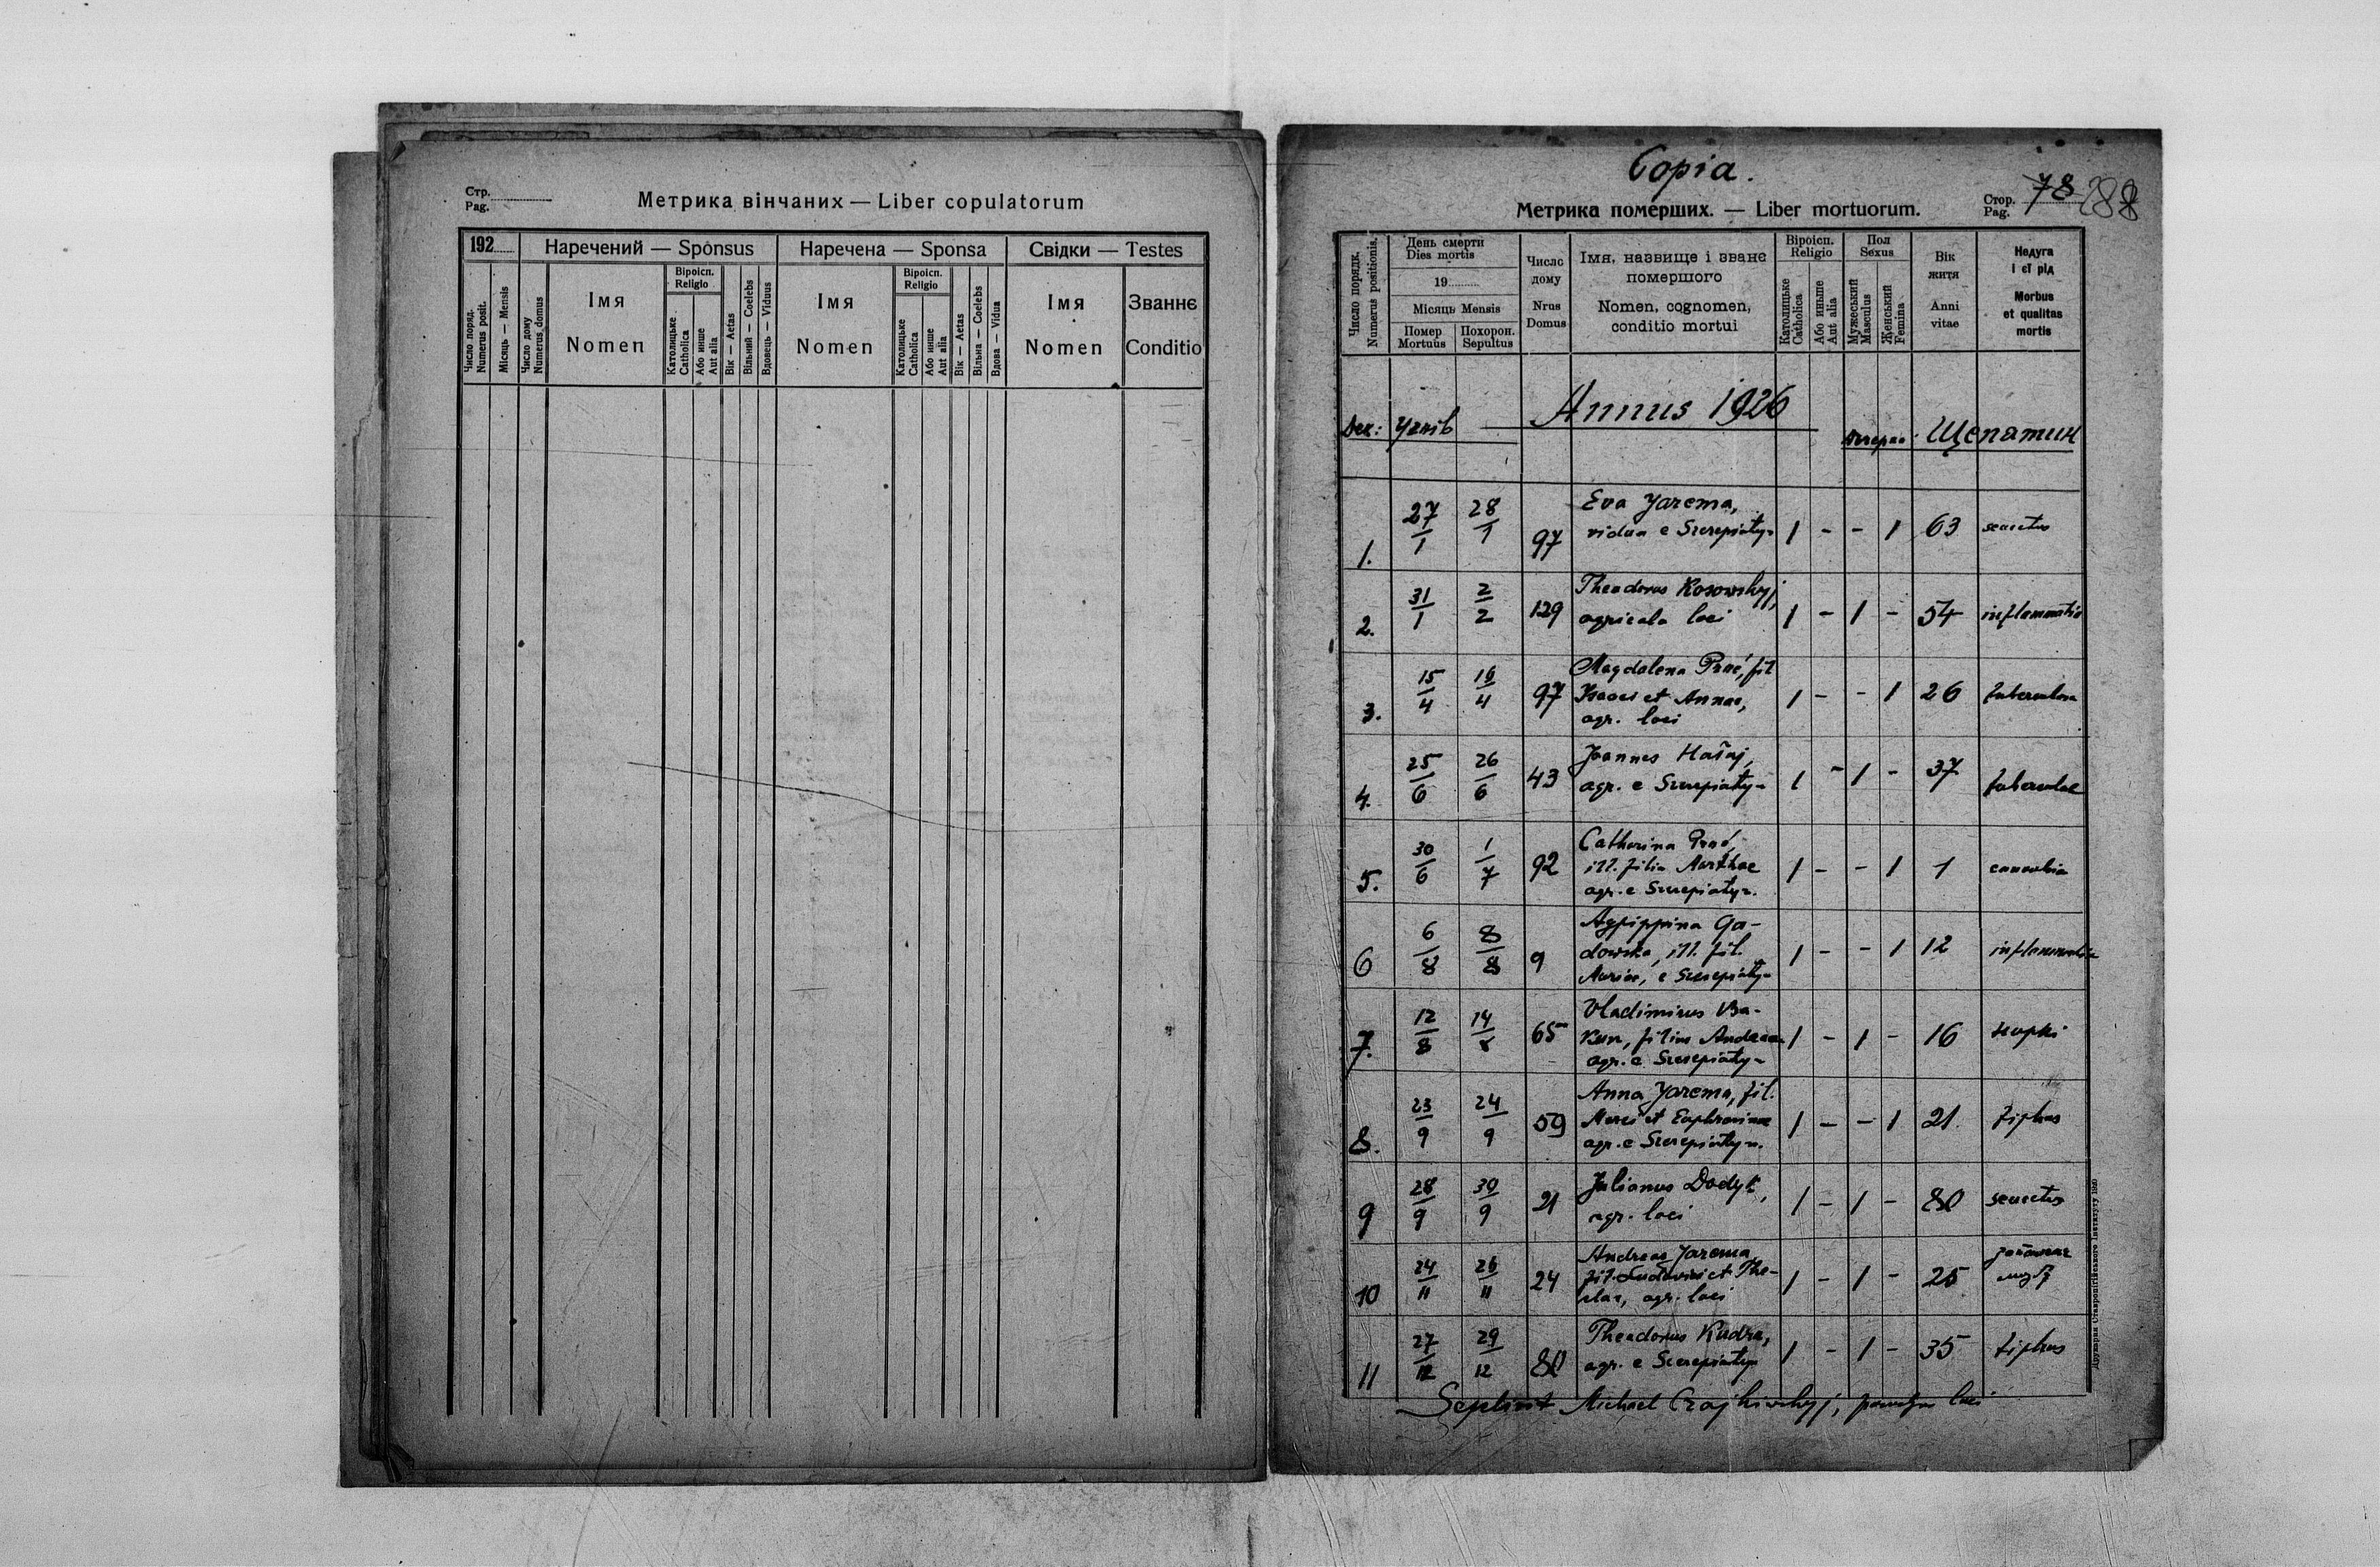 Стр.
Pag.
Метрика вінчаних — Liber copulatorum
192
Наречений — Sponsus
Наречена — Sponsa
Свідки — Testes
Число поряд.
Numerus posit.
Місяць — Mensis
Число дому
Numerus domus
Імя
Nomen
Віроісп.
Religio
Католицьке
Catholica
Або инше
Aut alia
Вік — Aetas
Вільний — Coelebs
Вдовець — Viduus
Імя
Nomen
Віроісп.
Religio
Католицьке
Catholica
Або инше
Aut alia
Вік — Aetas
Вільна — Coelebs
Вдова — Vidua
Імя
Nomen
Званнє
Conditio
Copia.
Метрика померших. — Liber mortuorum.
Стор.
Pag.
78
Число порядк.
Numerus positionis.
День смерти
Dies mortis
19
Місяць Mensis
Помер
Mortuus
Похорон.
Sepultus
Число
дому
Nrus
Domus
Імя, назвище і званє
помершого
Nomen, cognomen,
conditio mortui
Віроісп.
Religio
Католицьке
Catholica
Або иньше
Aut alia
Пол
Sexus
Мужеський
Masculus
Женський
Femina
Вік
житя
Anni
vitae
Недуга
і єї рід
Morbus
et qualitas
mortis
Annus 1926
Дек: Угнів
Щепятин
1. 27/1 28/1 97 Eva Jarema,
vidua e Szczepiatyn 1 - - 1 63 senectus
2. 31/1 2/2 129 Theodorus Kosowskyj,
agricola loci 1 - 1 - 54 inflammatio
3. 15/4 16/4 97 Magdalena Pruć, fil
Isaaci et Annae,
agr. loci 1 - - 1 26 tuberculosa
4. 25/6 26/6 43 Joannes
agr. e Szczepiatyn 1 - 1 - 37 tubercul
5. 30/6 1/7 92 Catharina Pruć,
ill. filia Marthae
agr. e Szczepiatyn. 1 - - 1 1
6 6/8 8/8 9 Agrippina Ga-
dowska, ill. fil.
Mariae, e Szczepiatyn 1 - - 1 12 inflammatio
7. 12/8 14/8 65 Vladimirus Ba-
kun, filius Andreae
agr. e Szczepiatyn 1 - 1 - 16
8. 23/9 24/9 59 Anna Jarema, fil.
et Euphrosinae
agr. e Szczepiatyn. 1 - - 1 21 tiphus
9 28/9 30/9 21 Julianus Dodyk,
agr. loci 1 - 1 - 80 senectus
10 24/11 26/11 24 Andreas Jarema
fil. Ludovici et The-
clae, agr. loci 1 - 1 - 25
11 27/12 29/12 80 Theodorus Kudra,
agr. e Szczepiatyn 1 - 1 - 35 tiphus
Michael Czajkiwskyj, loci
Друкарня Ставропігійського Інституту 1920